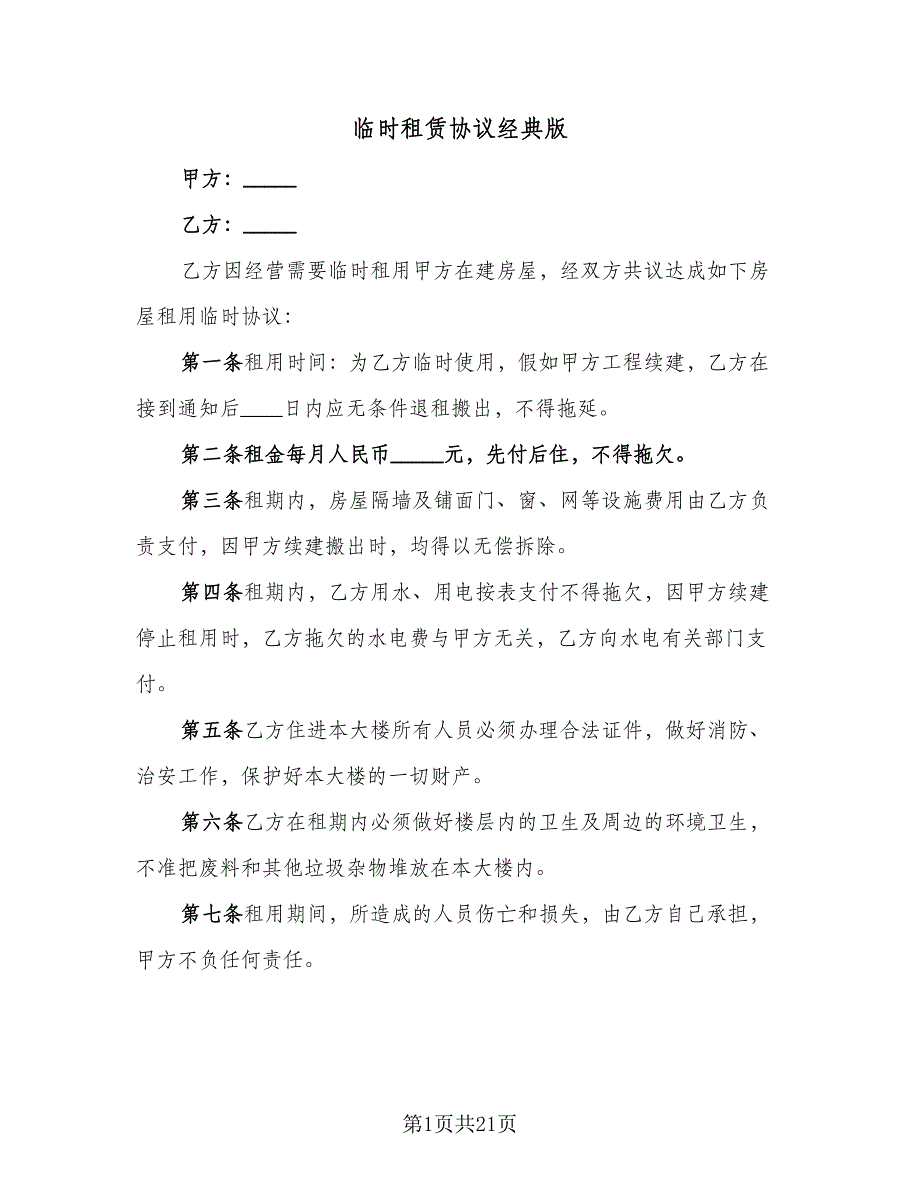 临时租赁协议经典版
甲方：_____
乙方：_____
乙方因经营需要临时租用甲方在建房屋，经双方共议达成如下房
屋租用临时协议：
第一条租用时间：为乙方临时使用，假如甲方工程续建，乙方在
接到通知后____日内应无条件退租搬出，不得拖延。
第二条租金每月人民币_____元，先付后住，不得拖欠。
第三条租期内，房屋隔墙及铺面门、窗、网等设施费用由乙方负
责支付，因甲方续建搬出时，均得以无偿拆除。
第四条租期内，乙方用水、用电按表支付不得拖欠，因甲方续建
停止租用时，乙方拖欠的水电费与甲方无关，乙方向水电有关部门支
付。
第五条乙方住进本大楼所有人员必须办理合法证件，做好消防、
治安工作，保护好本大楼的一切财产。
第六条乙方在租期内必须做好楼层内的卫生及周边的环境卫生，
不准把废料和其他垃圾杂物堆放在本大楼内。
第七条租用期间，所造成的人员伤亡和损失，由乙方自己承担，
甲方不负任何责任。
第1页共21页